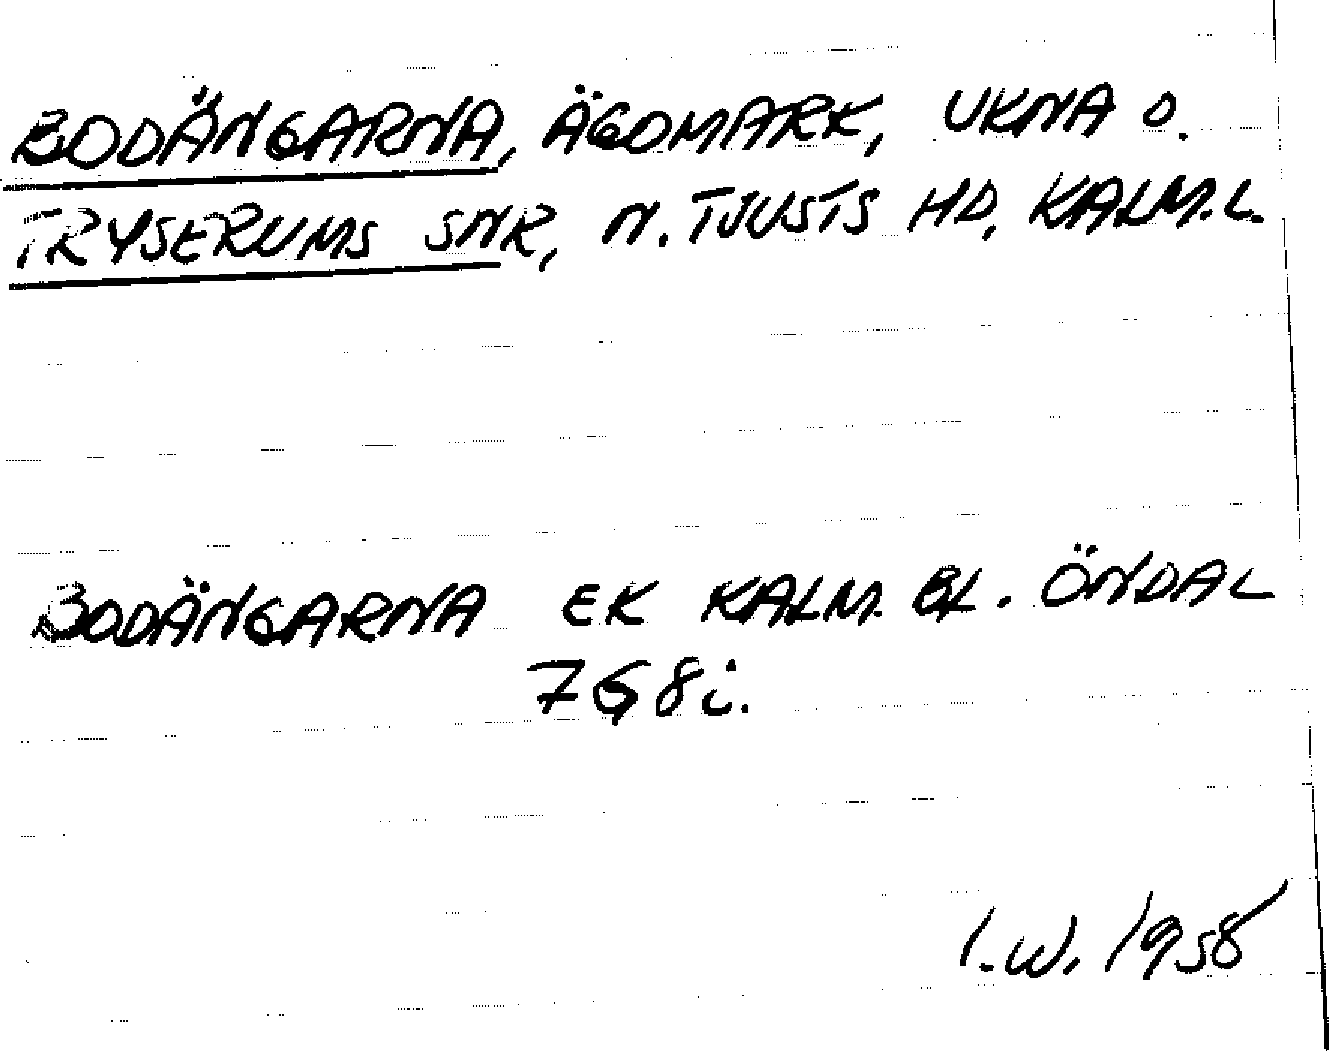 BODÄNGARNA, ÄGOMARK, UKNA O.
TRYSERUMS SNR, N. TJUSTS HD, KALM.L.
BODÄNGARNA EK KALM. BL. ÖNDAL
7G8i.
I.W. 1958